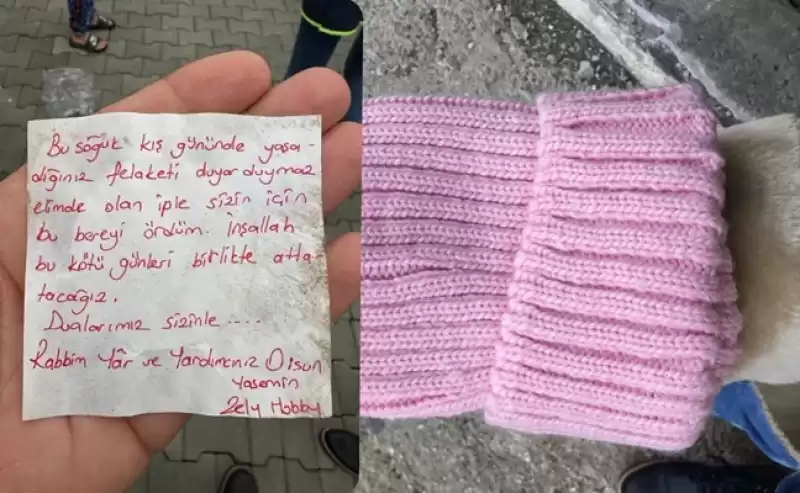 Bu soğuk kış gününde yaşa-
dığınız felaketi duyar duymaz
elimde olan iple sizin için
bu bereyi ördüm. İnşallah
bu kötü günleri birlikte atla-
tacağız.
Dualarımız sizinle ....
Rabbim Yâr ve Yardımcınız Olsun
Yasemin
Zely Hobby